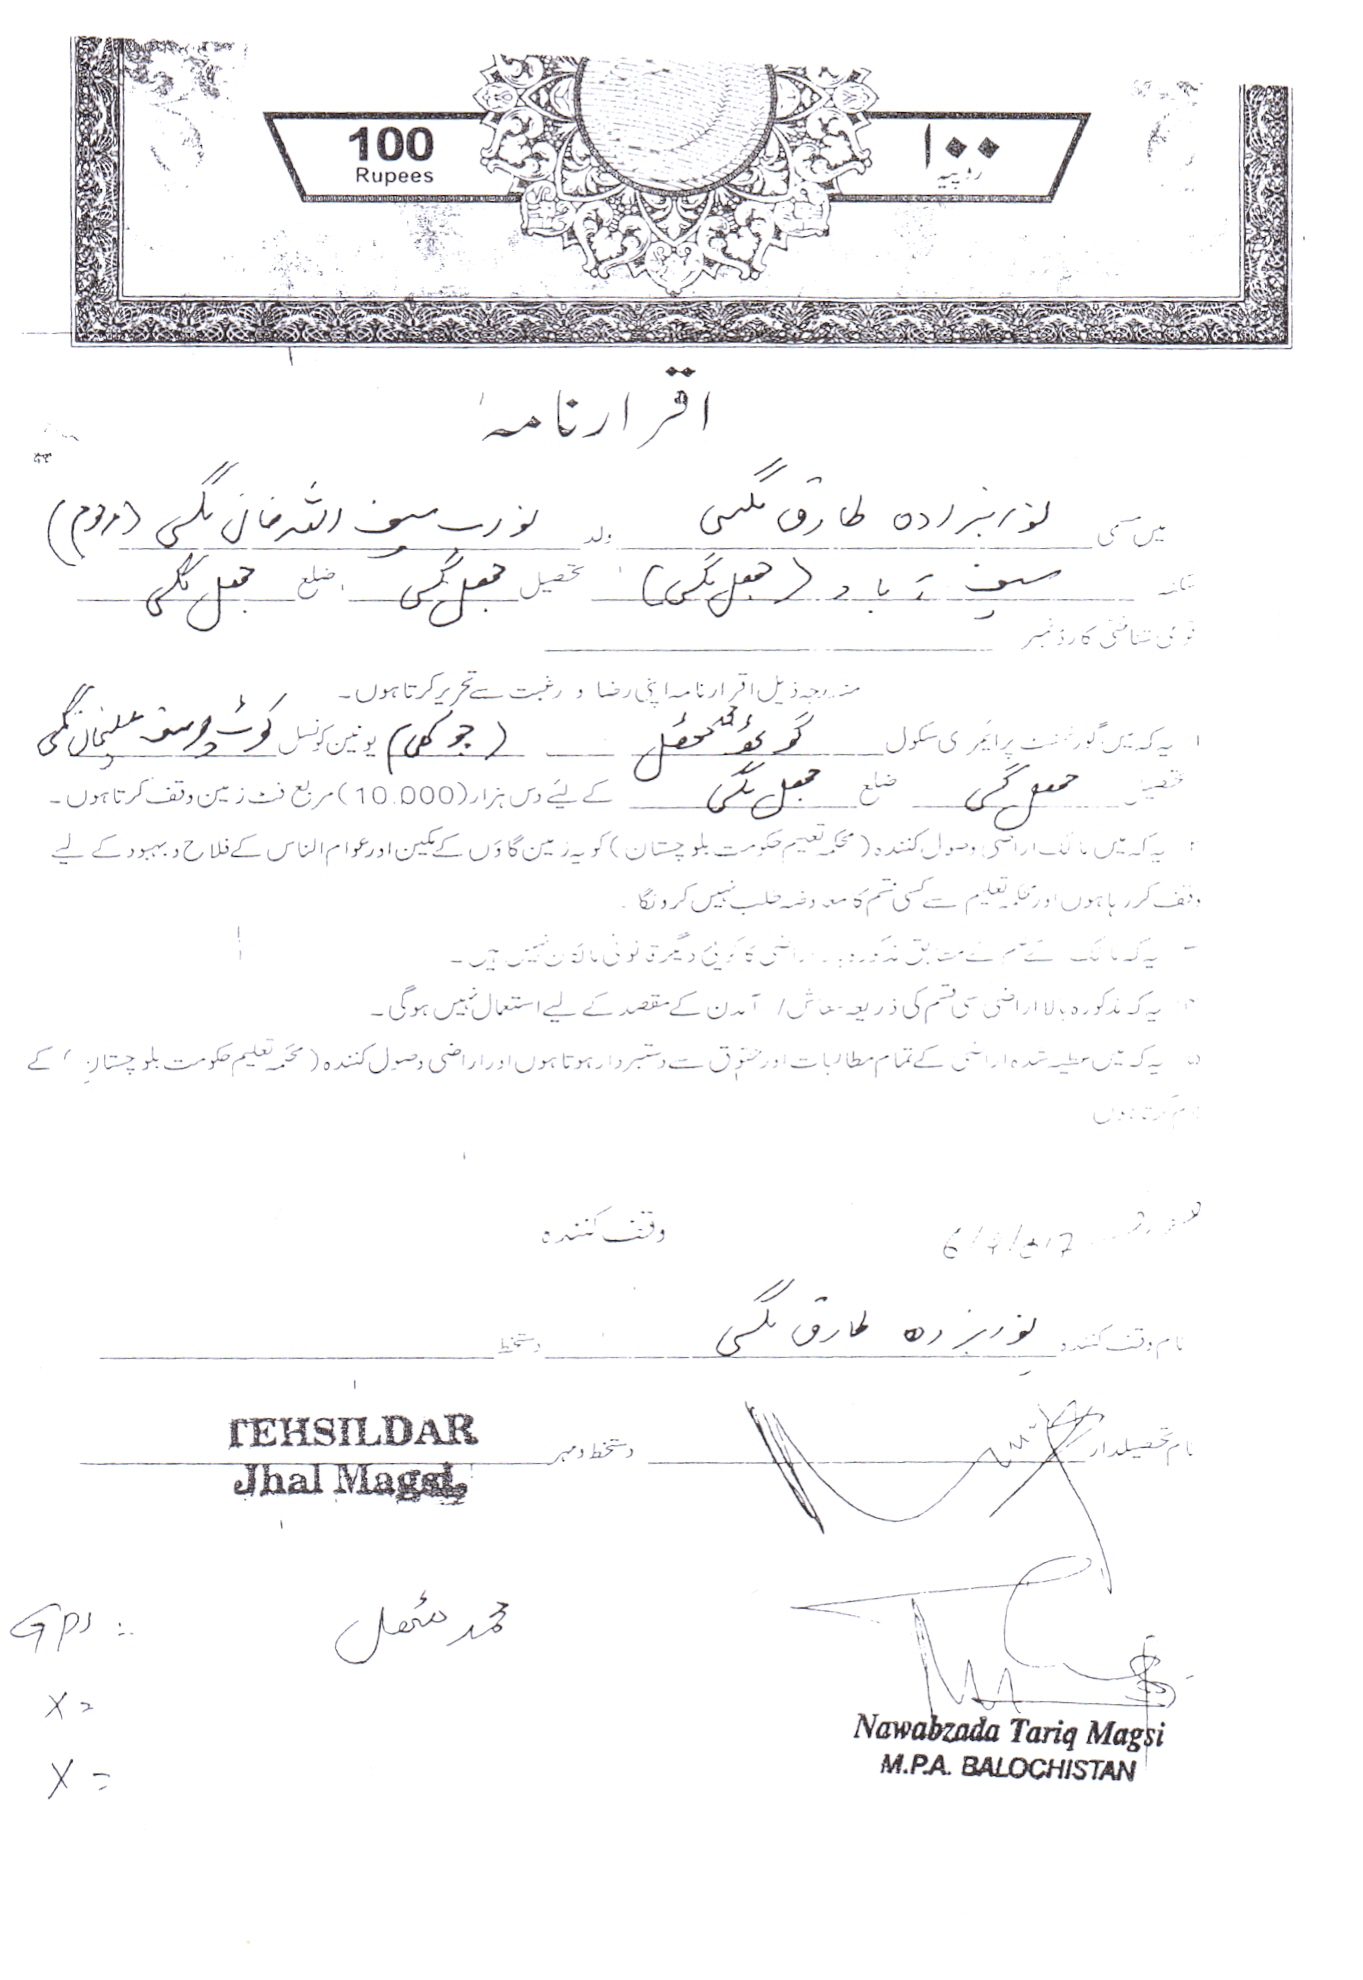 100
Rupees
۱۰۰
روپیہ
اقرارنامہ
میں مسمی نوابزادہ طارق مگسی ولد نواب سیف اللہ خان مگسی (مرحوم)
سکنہ سیف آباد (جھل مگسی) تحصیل جھل مگسی ضلع جھل مگسی
قومی شناختی کارڈ نمبر
مندرجہ ذیل اقرارنامہ اپنی رضا و رغبت سے تحریر کرتا ہوں۔
۱ یہ کہ میں گورنمنٹ پرائمری سکول گوٹھ (جوکھی) یونین کونسل کوٹ یوسف علیخان مگسی
تحصیل جھل مگسی ضلع جھل مگسی کے لیئے دس ہزار (10.000) مربع فٹ زمین وقف کرتا ہوں۔
۲ یہ کہ میں مالک اراضی وصول کنندہ (محکمہ تعلیم حکومت بلوچستان) کو یہ زمین گاؤں کے مکین اور عوام الناس کے فلاح و بہبود کے لیے
وقف کر رہا ہوں اور محکمہ تعلیم سے کسی قسم کا معاوضہ طلب نہیں کرونگا۔
۳ یہ کہ مالک کے علم کے مطابق مذکورہ بالا اراضی کا کوئی دیگر قانونی مالکان نہیں ہیں۔
۴ یہ کہ مذکورہ بالا اراضی کسی قسم کی ذریعہ معاش / آمدن کے مقصد کے لیے استعمال نہیں ہوگی۔
۵ یہ کہ میں عطیہ شدہ اراضی کے تمام مطالبات اور حقوق سے دستبردار ہوتا ہوں اور اراضی وصول کنندہ (محکمہ تعلیم حکومت بلوچستان) کے
نام کرتا ہوں
وقف کنندہ
نام وقف کنندہ نوابزادہ طارق مگسی دستخط
نام تحصیلدار دستخط و مہر
TEHSILDAR
Jhal Magsi
GPS :-
محمد
X =
X =
Nawabzada Tariq Magsi
M.P.A. BALOCHISTAN